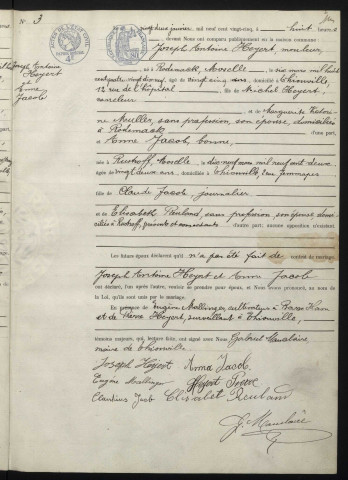 N° 3
Joseph Antoine
Heyert
et
Anne
Jacob
deux janvier mil neuf cent vingt-cinq à huit heures
devant Nous ont comparu publiquement en la maison commune :
Joseph Antoine Heyert, mouleur,
né à Rodemack, Moselle, le six mars mil huit
cent quatre vingt dix neuf, âgé de vingt cinq ans, domicilié à Thionville,
12 rue de l'hôpital, fils de Michel Heyert,
et de Marguerite Victorine
Muller, sans profession, son épouse, domiciliés
à Rodemack d'une part,
et Anne Jacob, bonne,
née à , Moselle, le dix neuf avril mil neuf cent deux
âgée de vingt deux ans, domiciliée à Thionville, rue Jemmapes
fille de Claude Jacob journalier
et de Elisabeth , sans profession son épouse, domiciliés
à d'autre part; aucune opposition n'existant
Les futurs époux déclarent qu'il n'a pas été fait de contrat de mariage.
Joseph Antoine Heyert et Anne Jacob
ont déclaré, l'un après l'autre, vouloir se prendre pour époux, et Nous avons prononcé, au nom de
la Loi, qu'ils sont unis par le mariage.
En présence de Eugène Mellinger, cultivateur à Basse Ham
et de Pierre Heyert, surveillant à Thionville,
témoins majeurs, qui, lecture faite, ont signé avec Nous Gabriel Mauclaire,
maire de Thionville
Joseph Heyert Anna Jacob
Eugène Mellinger Heyert Pierre
Claudius Jacob Elisabet
G. Mauclaire